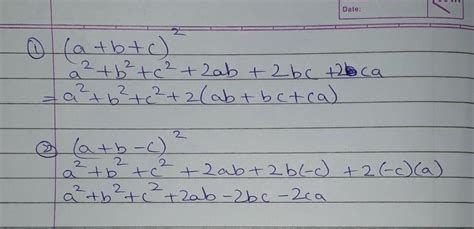 Date:
① (a+b+c)²
a²+b²+c²+2ab+2bc+2ca
=a²+b²+c²+2(ab+bc+ca)
② (a+b-c)²
a²+b²+c²+2ab+2b(-c)+2(-c)(a)
a²+b²+c²+2ab-2bc-2ca